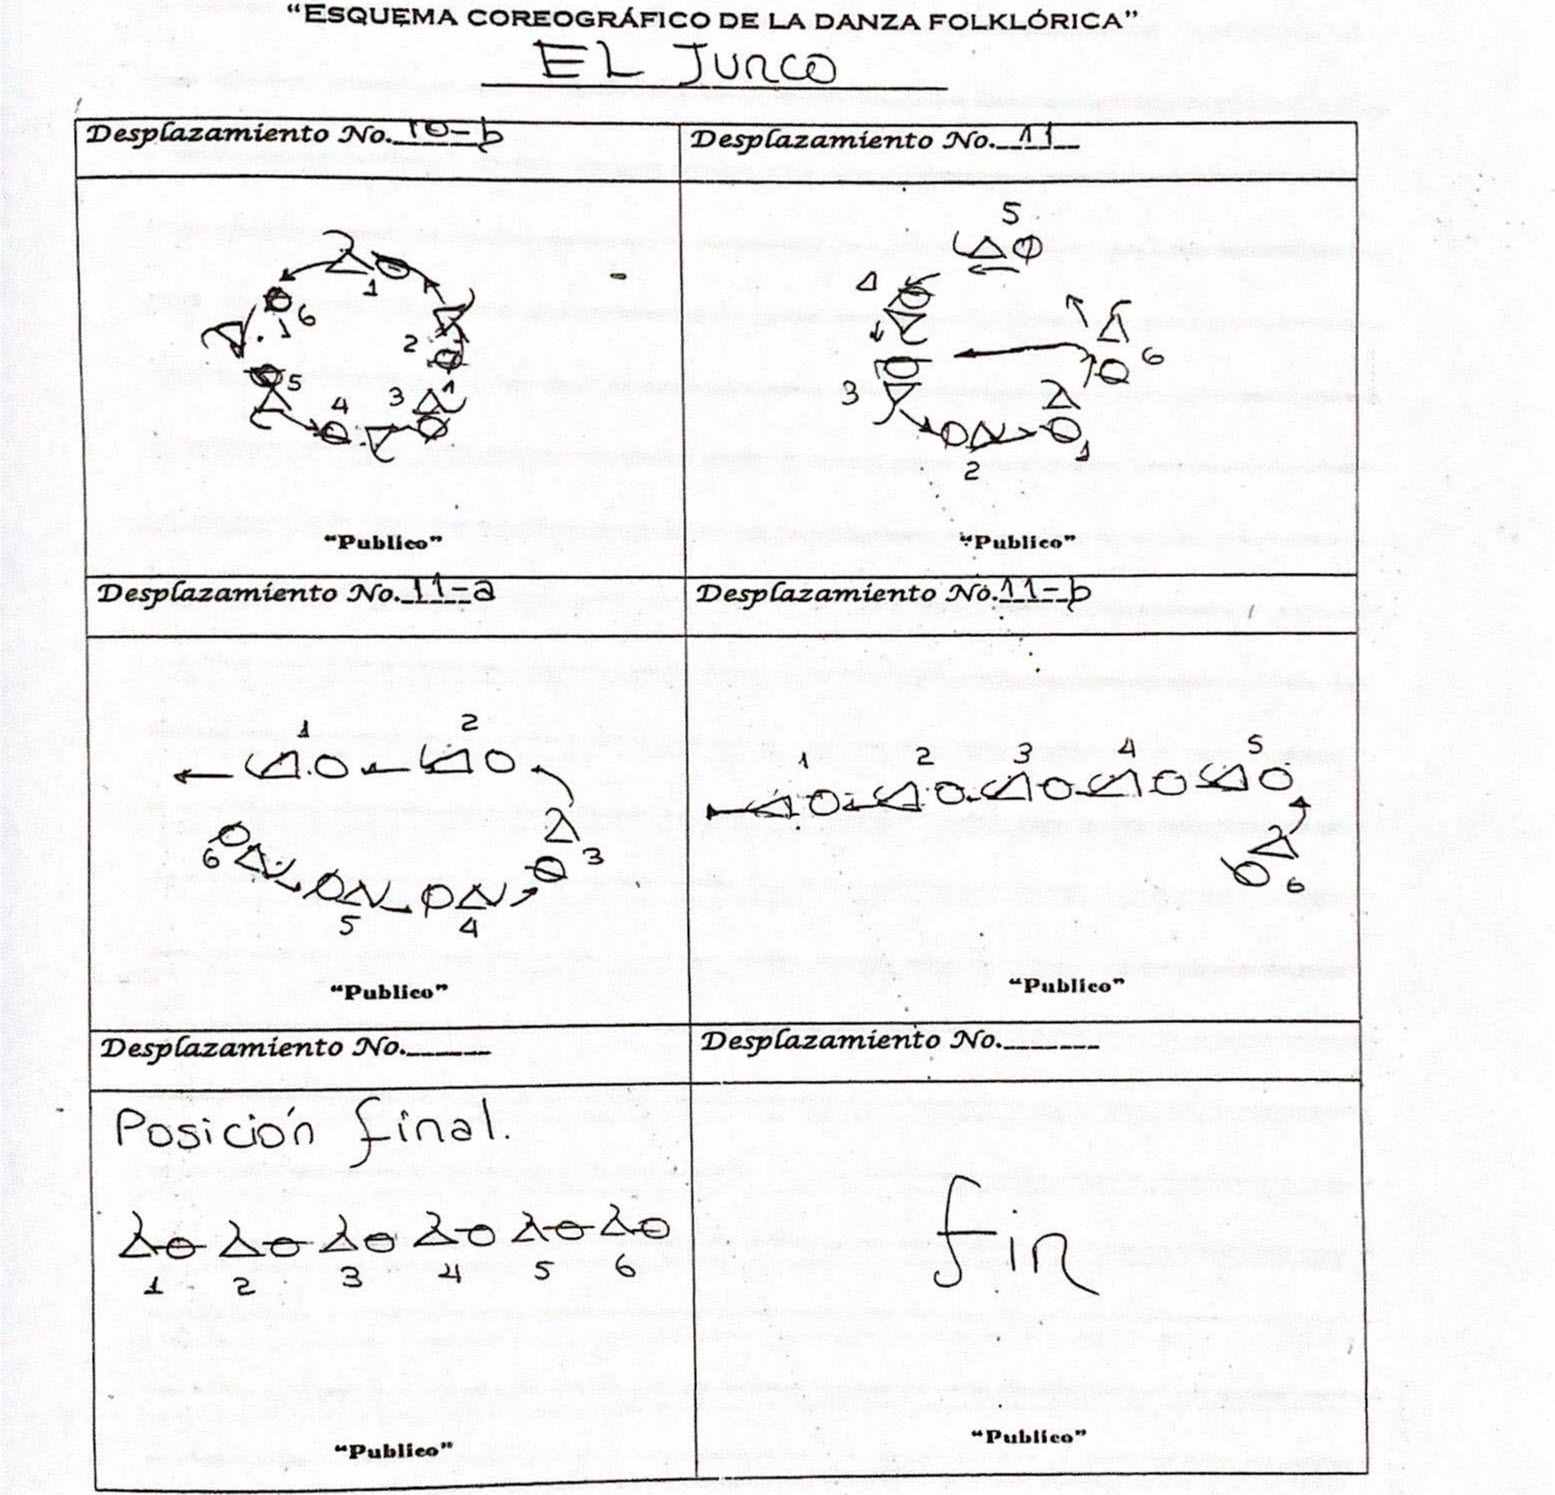 “ESQUEMA COREOGRÁFICO DE LA DANZA FOLKLÓRICA”
EL JURCO
Desplazamiento No. 10-b
Desplazamiento No. 11
1
6
2
5
4
3
“Publico”
5
4
6
3
1
2
“Publico”
Desplazamiento No. 11-a
Desplazamiento No. 11-b
1 2
6 3
5 4
“Publico”
1 2 3 4 5
6
“Publico”
Desplazamiento No.
Desplazamiento No.
Posición final.
1 2 3 4 5 6
“Publico”
fin
“Publico”